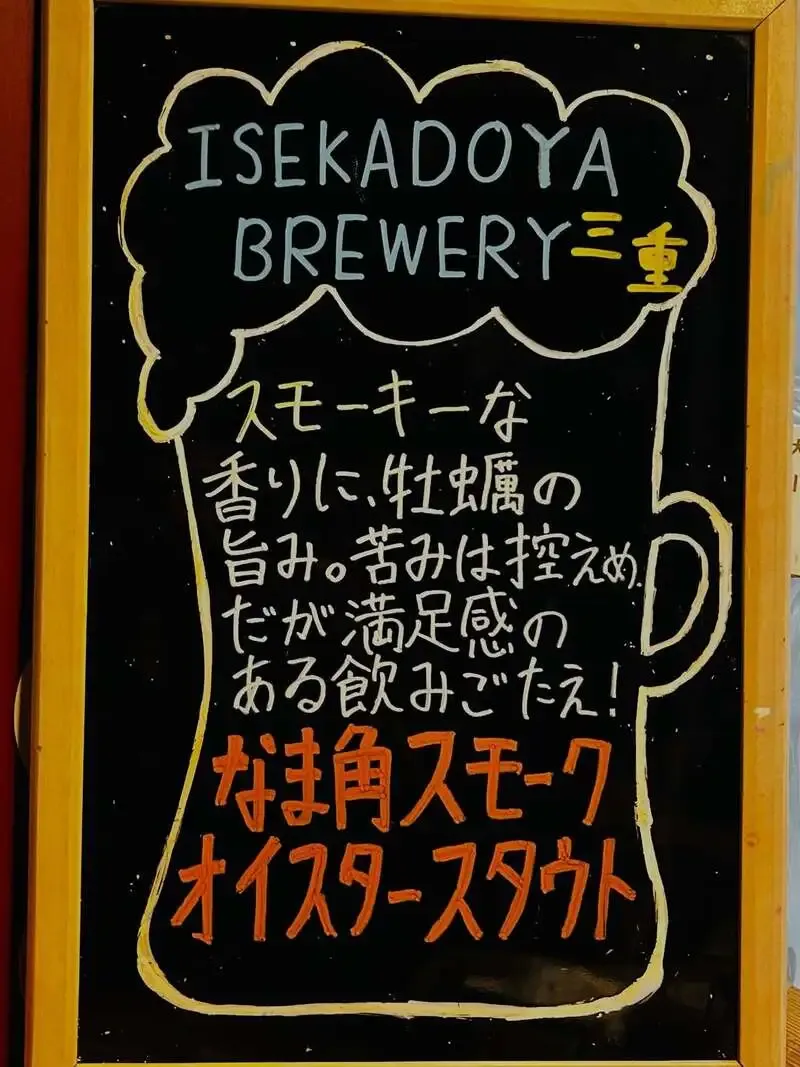 ISEKADOYA
BREWERY 三重
スモーキーな
香りに、牡蠣の
旨み。苦みは控えめ
だが満足感の
ある飲みごたえ!
なま角スモーク
オイスタースタウト